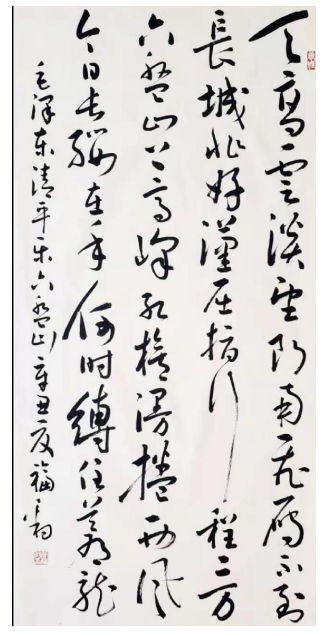 天高雲淡望断南飞雁不到
長城非好漢屈指行程二万
六盘山上高峰红旗漫捲西风
今日长缨在手何时缚住苍龙
毛泽东清平乐六盘山辛丑夏福